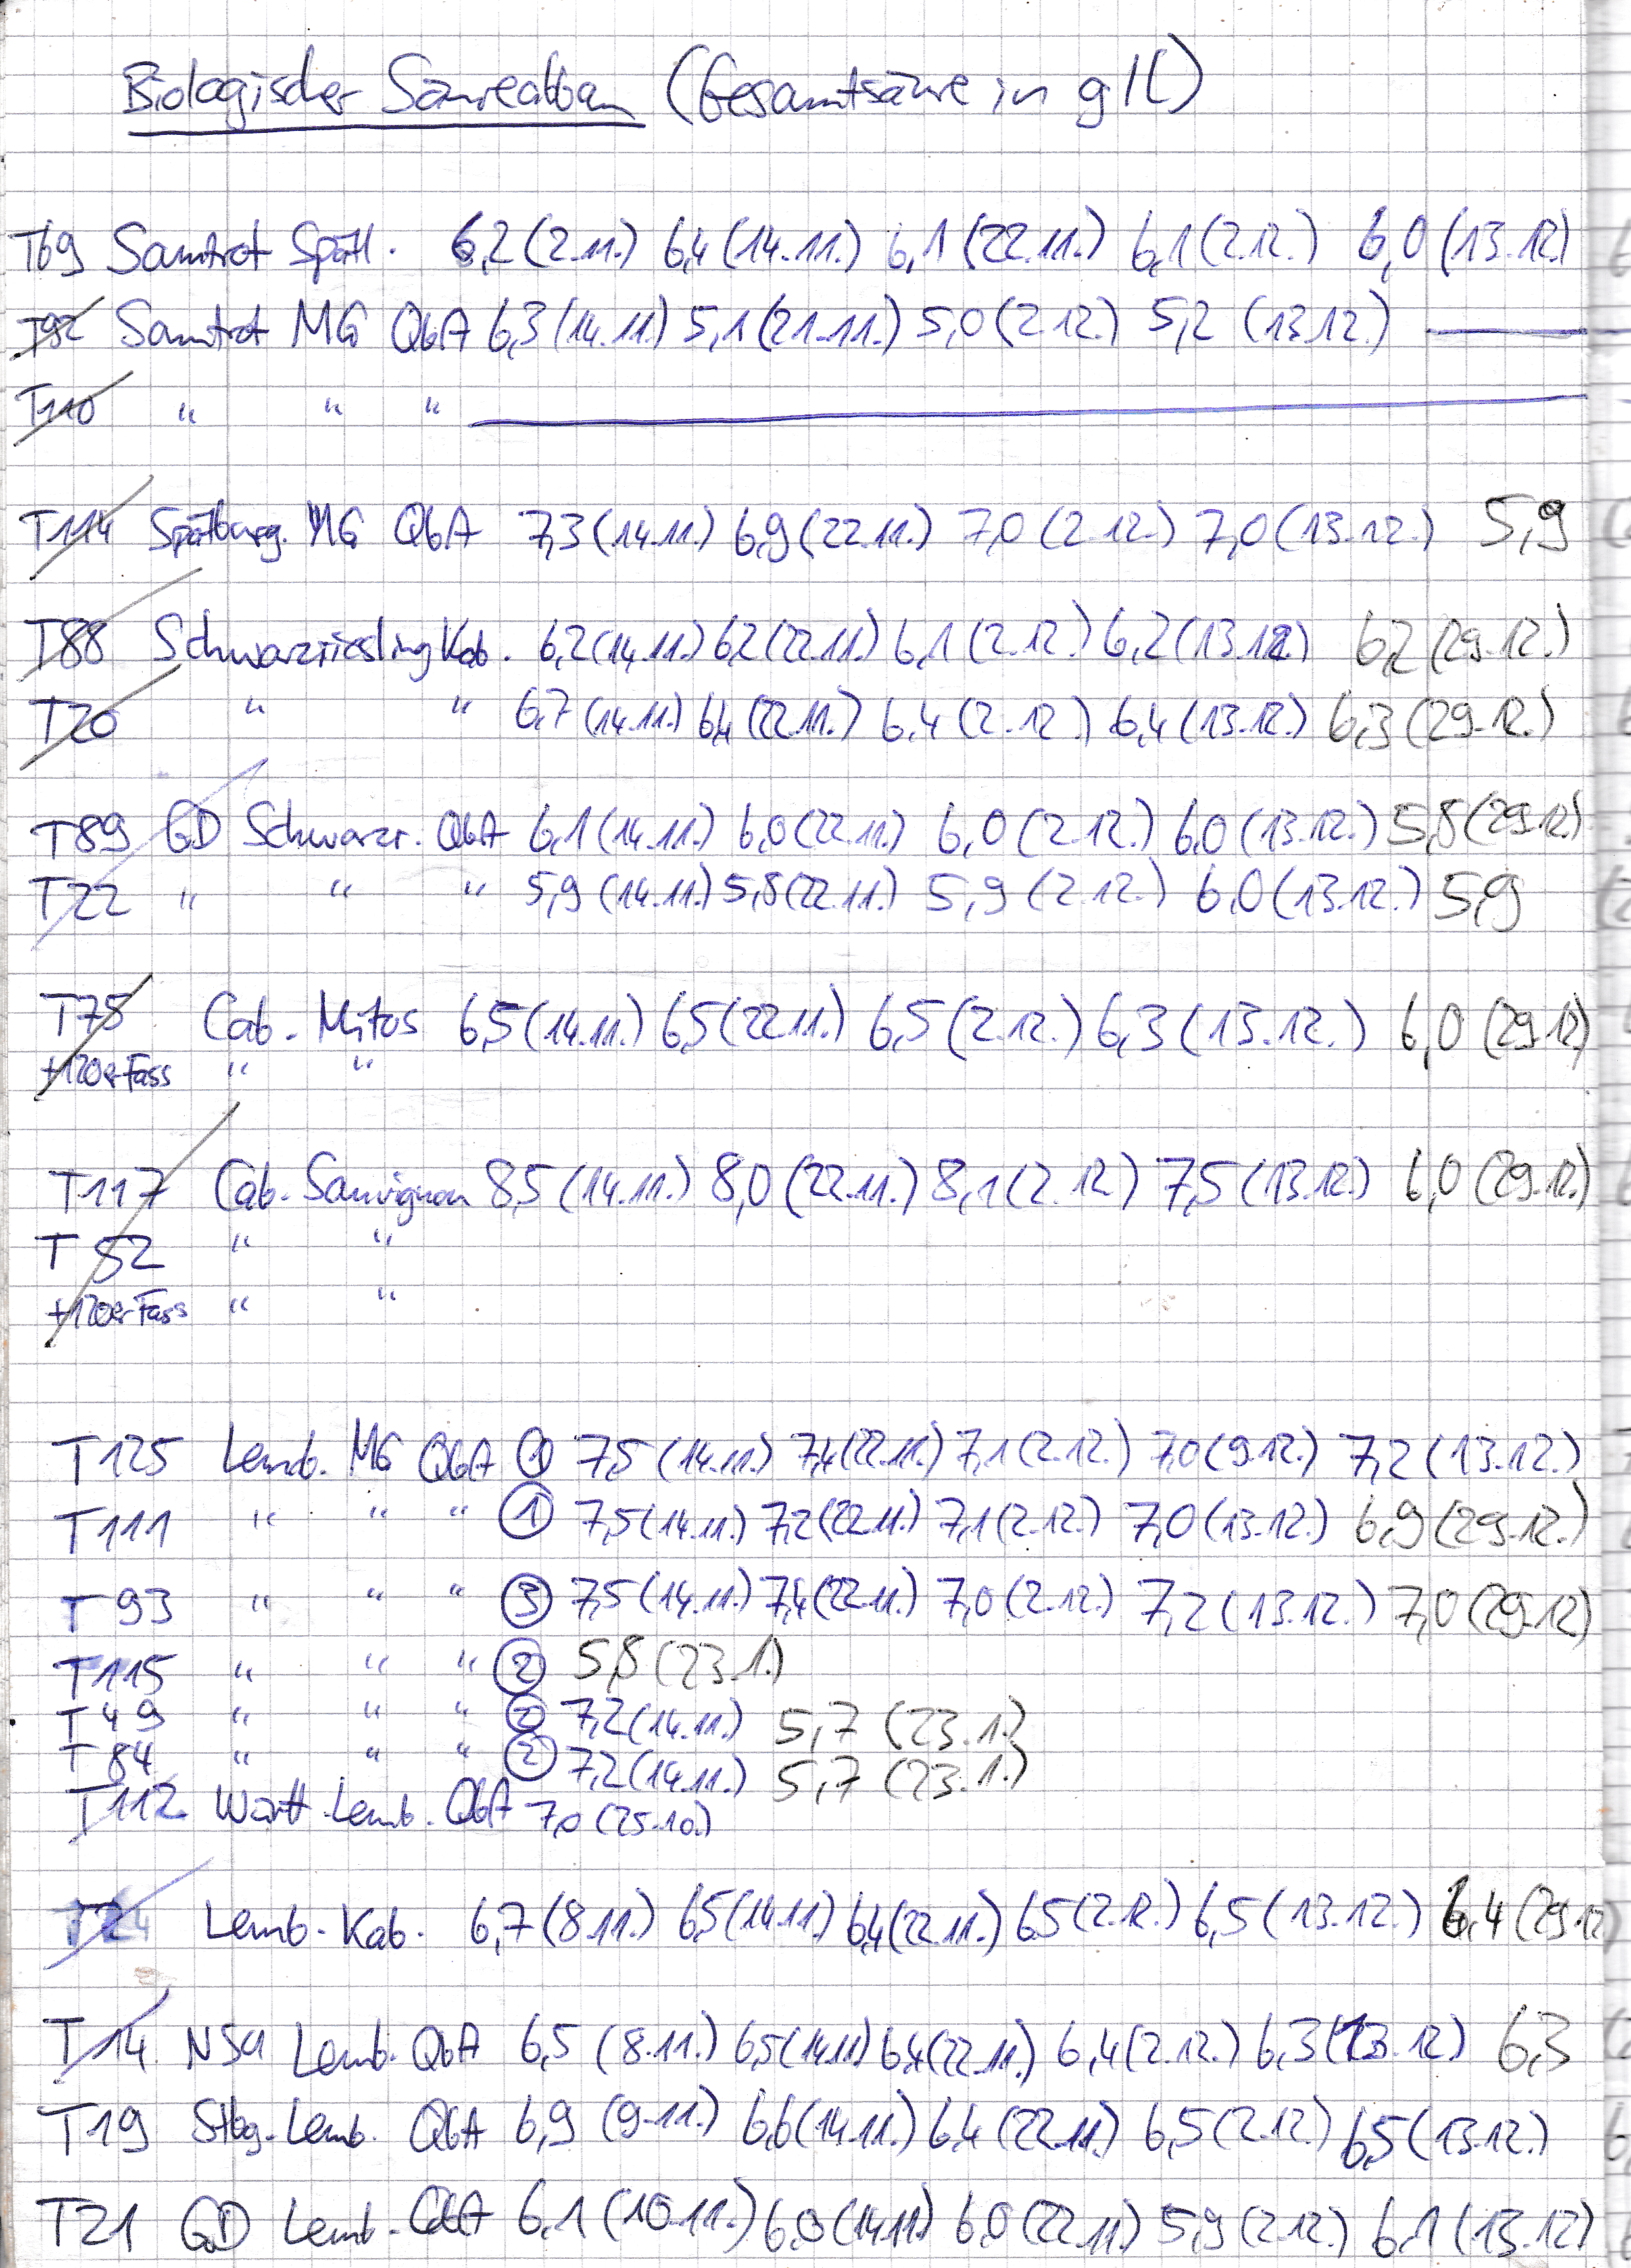 Biologischer Säureabbau (Gesamtsäure in g/l)
T69 Samtrot Spätl. 6,2 (2.11.) 6,4 (14.11.) 6,1 (22.11.) 6,1 (2.12.) 6,0 (13.12.)
T92 Samtrot MG QbA 6,3 (14.11.) 5,1 (21.11.) 5,0 (2.12.) 5,2 (13.12.)
T110 " " "
T114 Spätburg. MG QbA 7,3 (14.11.) 6,9 (22.11.) 7,0 (2.12.) 7,0 (13.12.) 5,9
T88 Schwarzriesling Kab. 6,2 (14.11.) 6,2 (22.11.) 6,1 (2.12.) 6,2 (13.12.) 6,2 (29.12.)
T20 " " 6,7 (14.11.) 6,4 (22.11.) 6,4 (2.12.) 6,4 (13.12.) 6,3 (29.12.)
T89 GD Schwarzr. QbA 6,1 (14.11.) 6,0 (22.11.) 6,0 (2.12.) 6,0 (13.12.) 5,8 (29.12.)
T22 " " " 5,9 (14.11.) 5,8 (22.11.) 5,9 (2.12.) 6,0 (13.12.) 5,9
T75 Cab. Mitos 6,5 (14.11.) 6,5 (22.11.) 6,5 (2.12.) 6,3 (13.12.) 6,0 (29.12)
+120er Fass " "
T117 Cab. Sauvignon 8,5 (14.11.) 8,0 (22.11.) 8,1 (2.12.) 7,5 (13.12.) 6,0 (29.12.)
T 52 " "
+120er Fass " "
T125 Lemb. MG QbA ① 7,5 (14.11.) 7,4 (22.11.) 7,1 (2.12.) 7,0 (9.12.) 7,2 (13.12.)
T111 " " " ① 7,5 (14.11.) 7,2 (22.11.) 7,1 (2.12.) 7,0 (13.12.) 6,9 (29.12.)
T 93 " " " ③ 7,5 (14.11.) 7,4 (22.11.) 7,0 (2.12.) 7,2 (13.12.) 7,0 (29.12)
T115 " " " ② 5,8 (23.1.)
T 49 " " " ② 7,2 (14.11.) 5,7 (23.1.)
T 84 " " " ② 7,2 (14.11.) 5,7 (23.1.)
T112 Württ. Lemb. QbA 7,0 (25.10.)
Lemb. Kab. 6,7 (8.11.) 6,5 (14.11) 6,4 (22.11.) 6,5 (2.12.) 6,5 (13.12.) 6,4 (29.12)
T14 NSa Lemb. QbA 6,5 (8.11.) 6,5 (14.11) 6,4 (22.11.) 6,4 (2.12.) 6,3 (13.12) 6,3
T19 Stbg. Lemb. QbA 6,9 (9.11.) 6,6 (14.11.) 6,4 (22.11.) 6,5 (2.12.) 6,5 (13.12.)
T21 GD Lemb. QbA 6,1 (10.11.) 6,0 (14.11) 6,0 (22.11) 5,9 (2.12.) 6,1 (13.12)